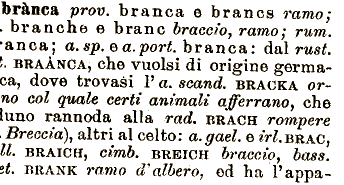 brànca prov. branca e brancs ramo;
. branche e branc braccio, ramo; rum.
ranca; a. sp. e a. port. branca: dal rust.
t. BRAÀNCA, che vuolsi di origine germa-
ca, dove trovasi l'a. scand. BRACKA or-
no col quale certi animali afferrano, che
luno rannoda alla rad. BRACH rompere
. Breccia), altri al celto: a. gael. e irl. BRAC,
ll. BRAICH, cimb. BREICH braccio, bass.
et. BRANK ramo d'albero, ed ha l'appa-